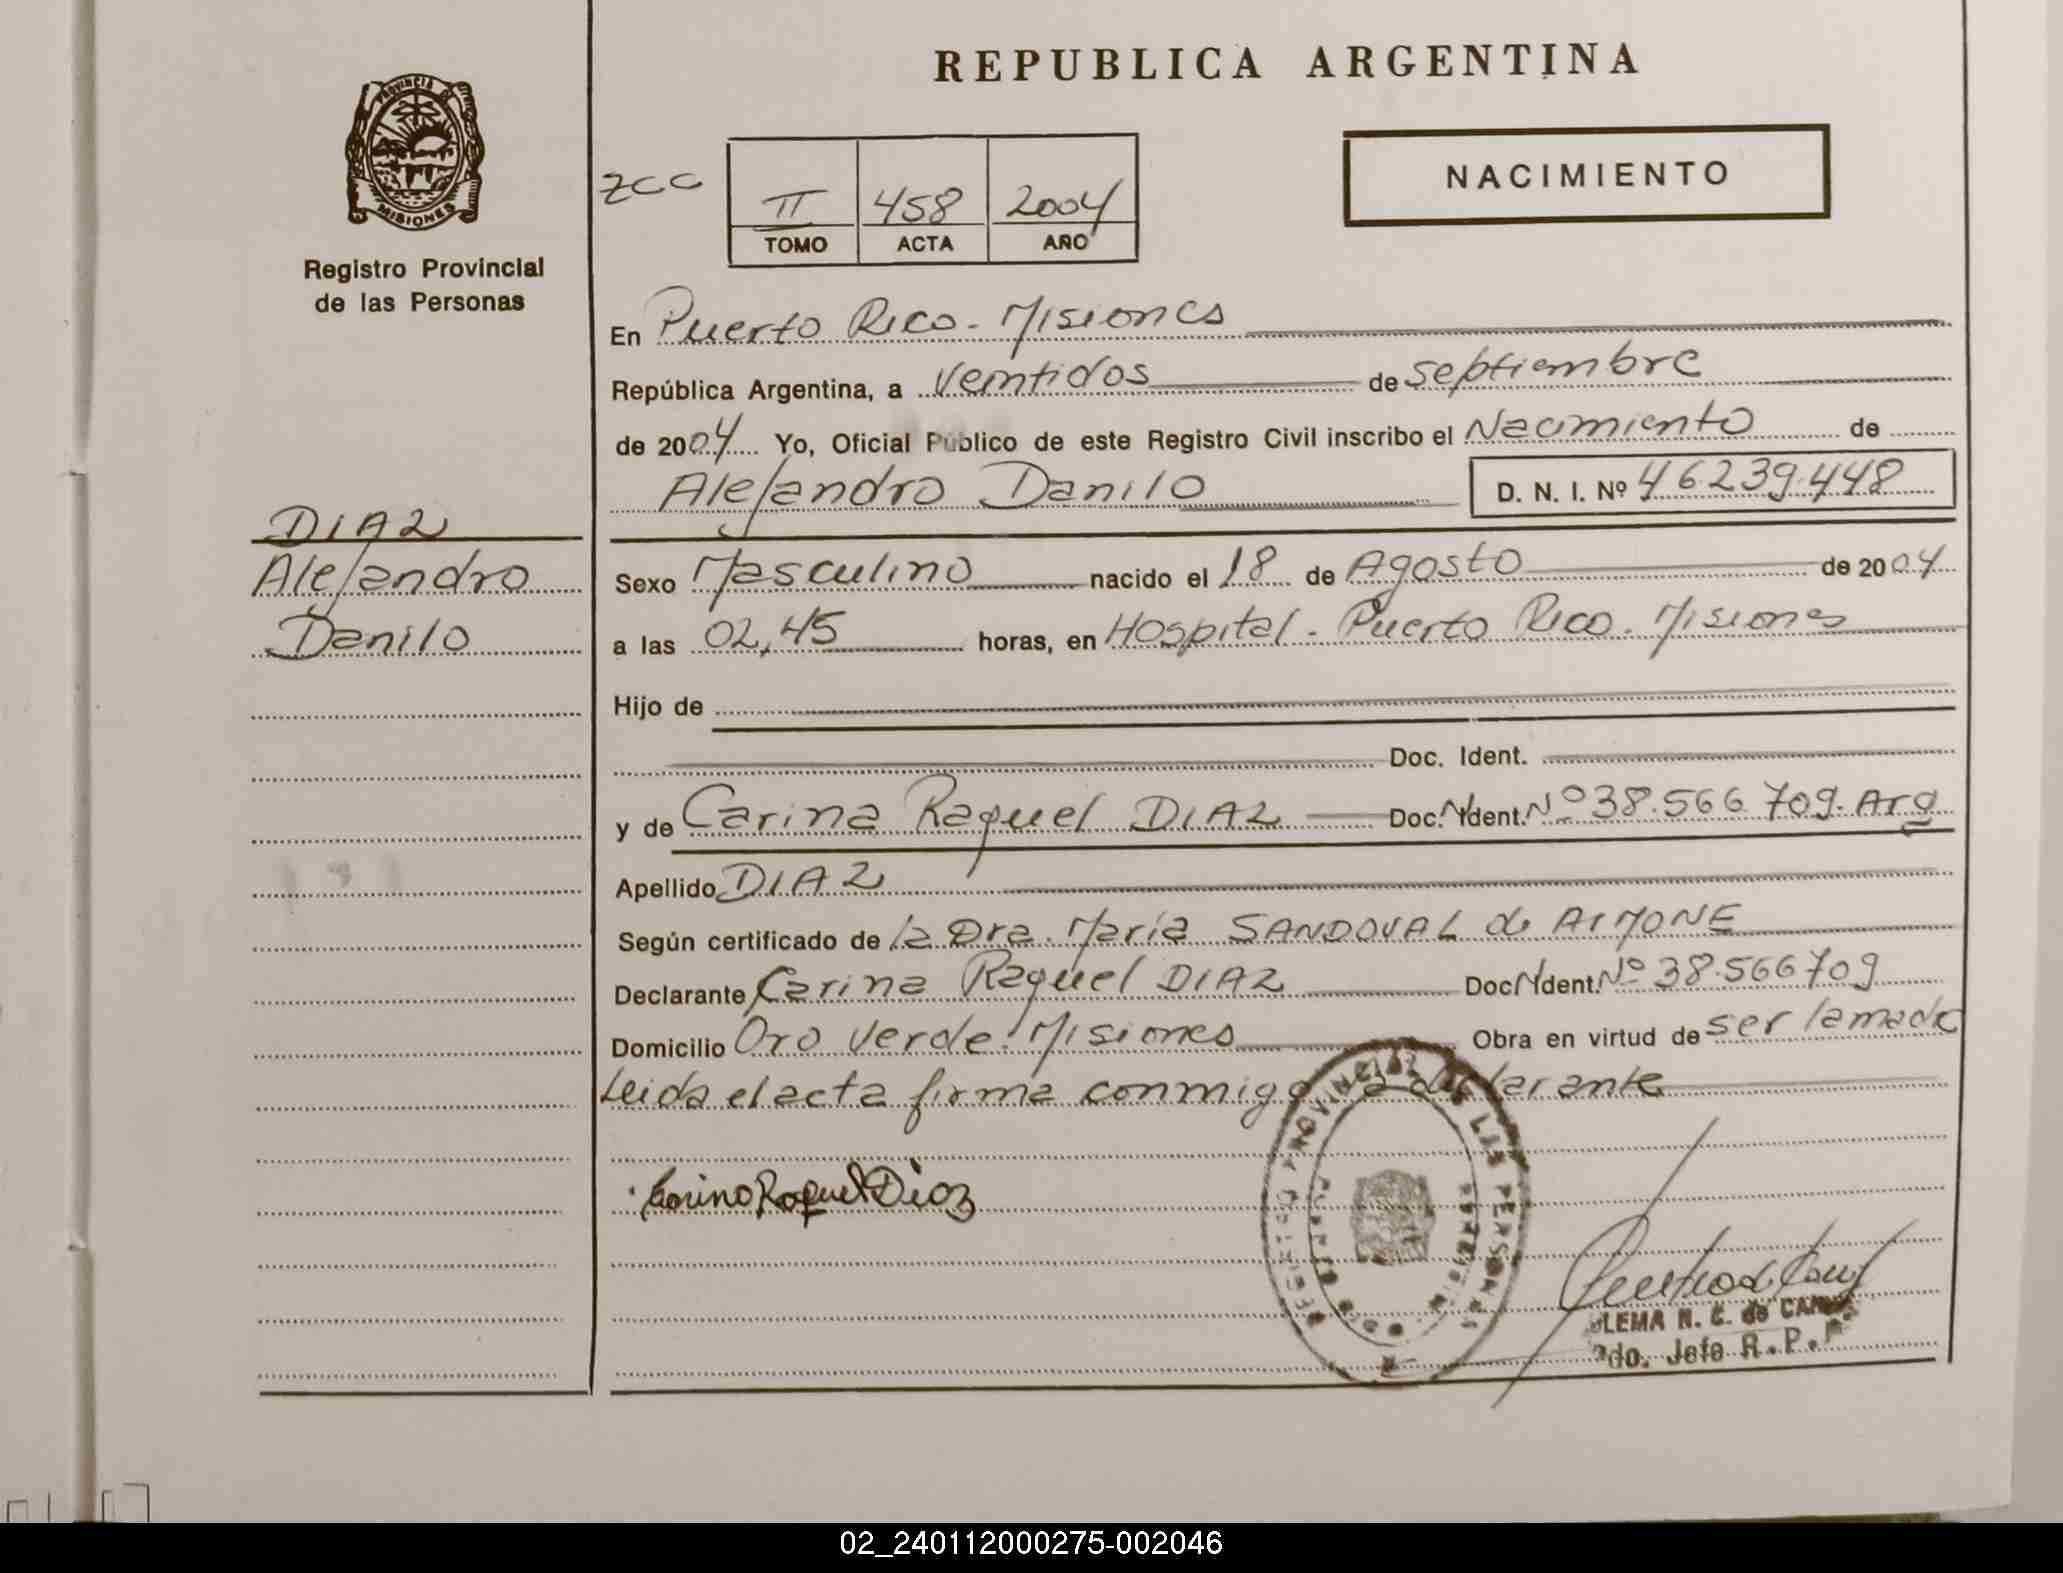 REPUBLICA ARGENTINA
PROVINCIA DE
MISIONES
Registro Provincial
de las Personas
ZCC
II 458 2004
TOMO ACTA AÑO
NACIMIENTO
En Puerto Rico - Misiones
República Argentina, a veintidos de septiembre
de 2004 Yo, Oficial Público de este Registro Civil inscribo el Nacimiento de
Alejandro Danilo D. N. I. Nº 46.239.448
DIAZ
Alejandro
Danilo
Sexo Masculino nacido el 18 de Agosto de 2004
a las 02,45 horas, en Hospital - Puerto Rico. Misiones
Hijo de
Doc. Ident.
y de Carina Raquel DIAZ Doc. N Ident. Nº 38.566.709. Arg
Apellido DIAZ
Según certificado de la Dra. María SANDOVAL de AIMONE
Declarante Carina Raquel DIAZ Doc N Ident. Nº 38.566709
Domicilio Oro Verde. Misiones Obra en virtud de ser la madre
Leida el acta firma conmigo la declarante
Carina Raquel Diaz
REGISTRO PROVINCIAL DE LAS PERSONAS
PUERTO RICO
N. C. de
Jefe R. P.
02_240112000275-002046